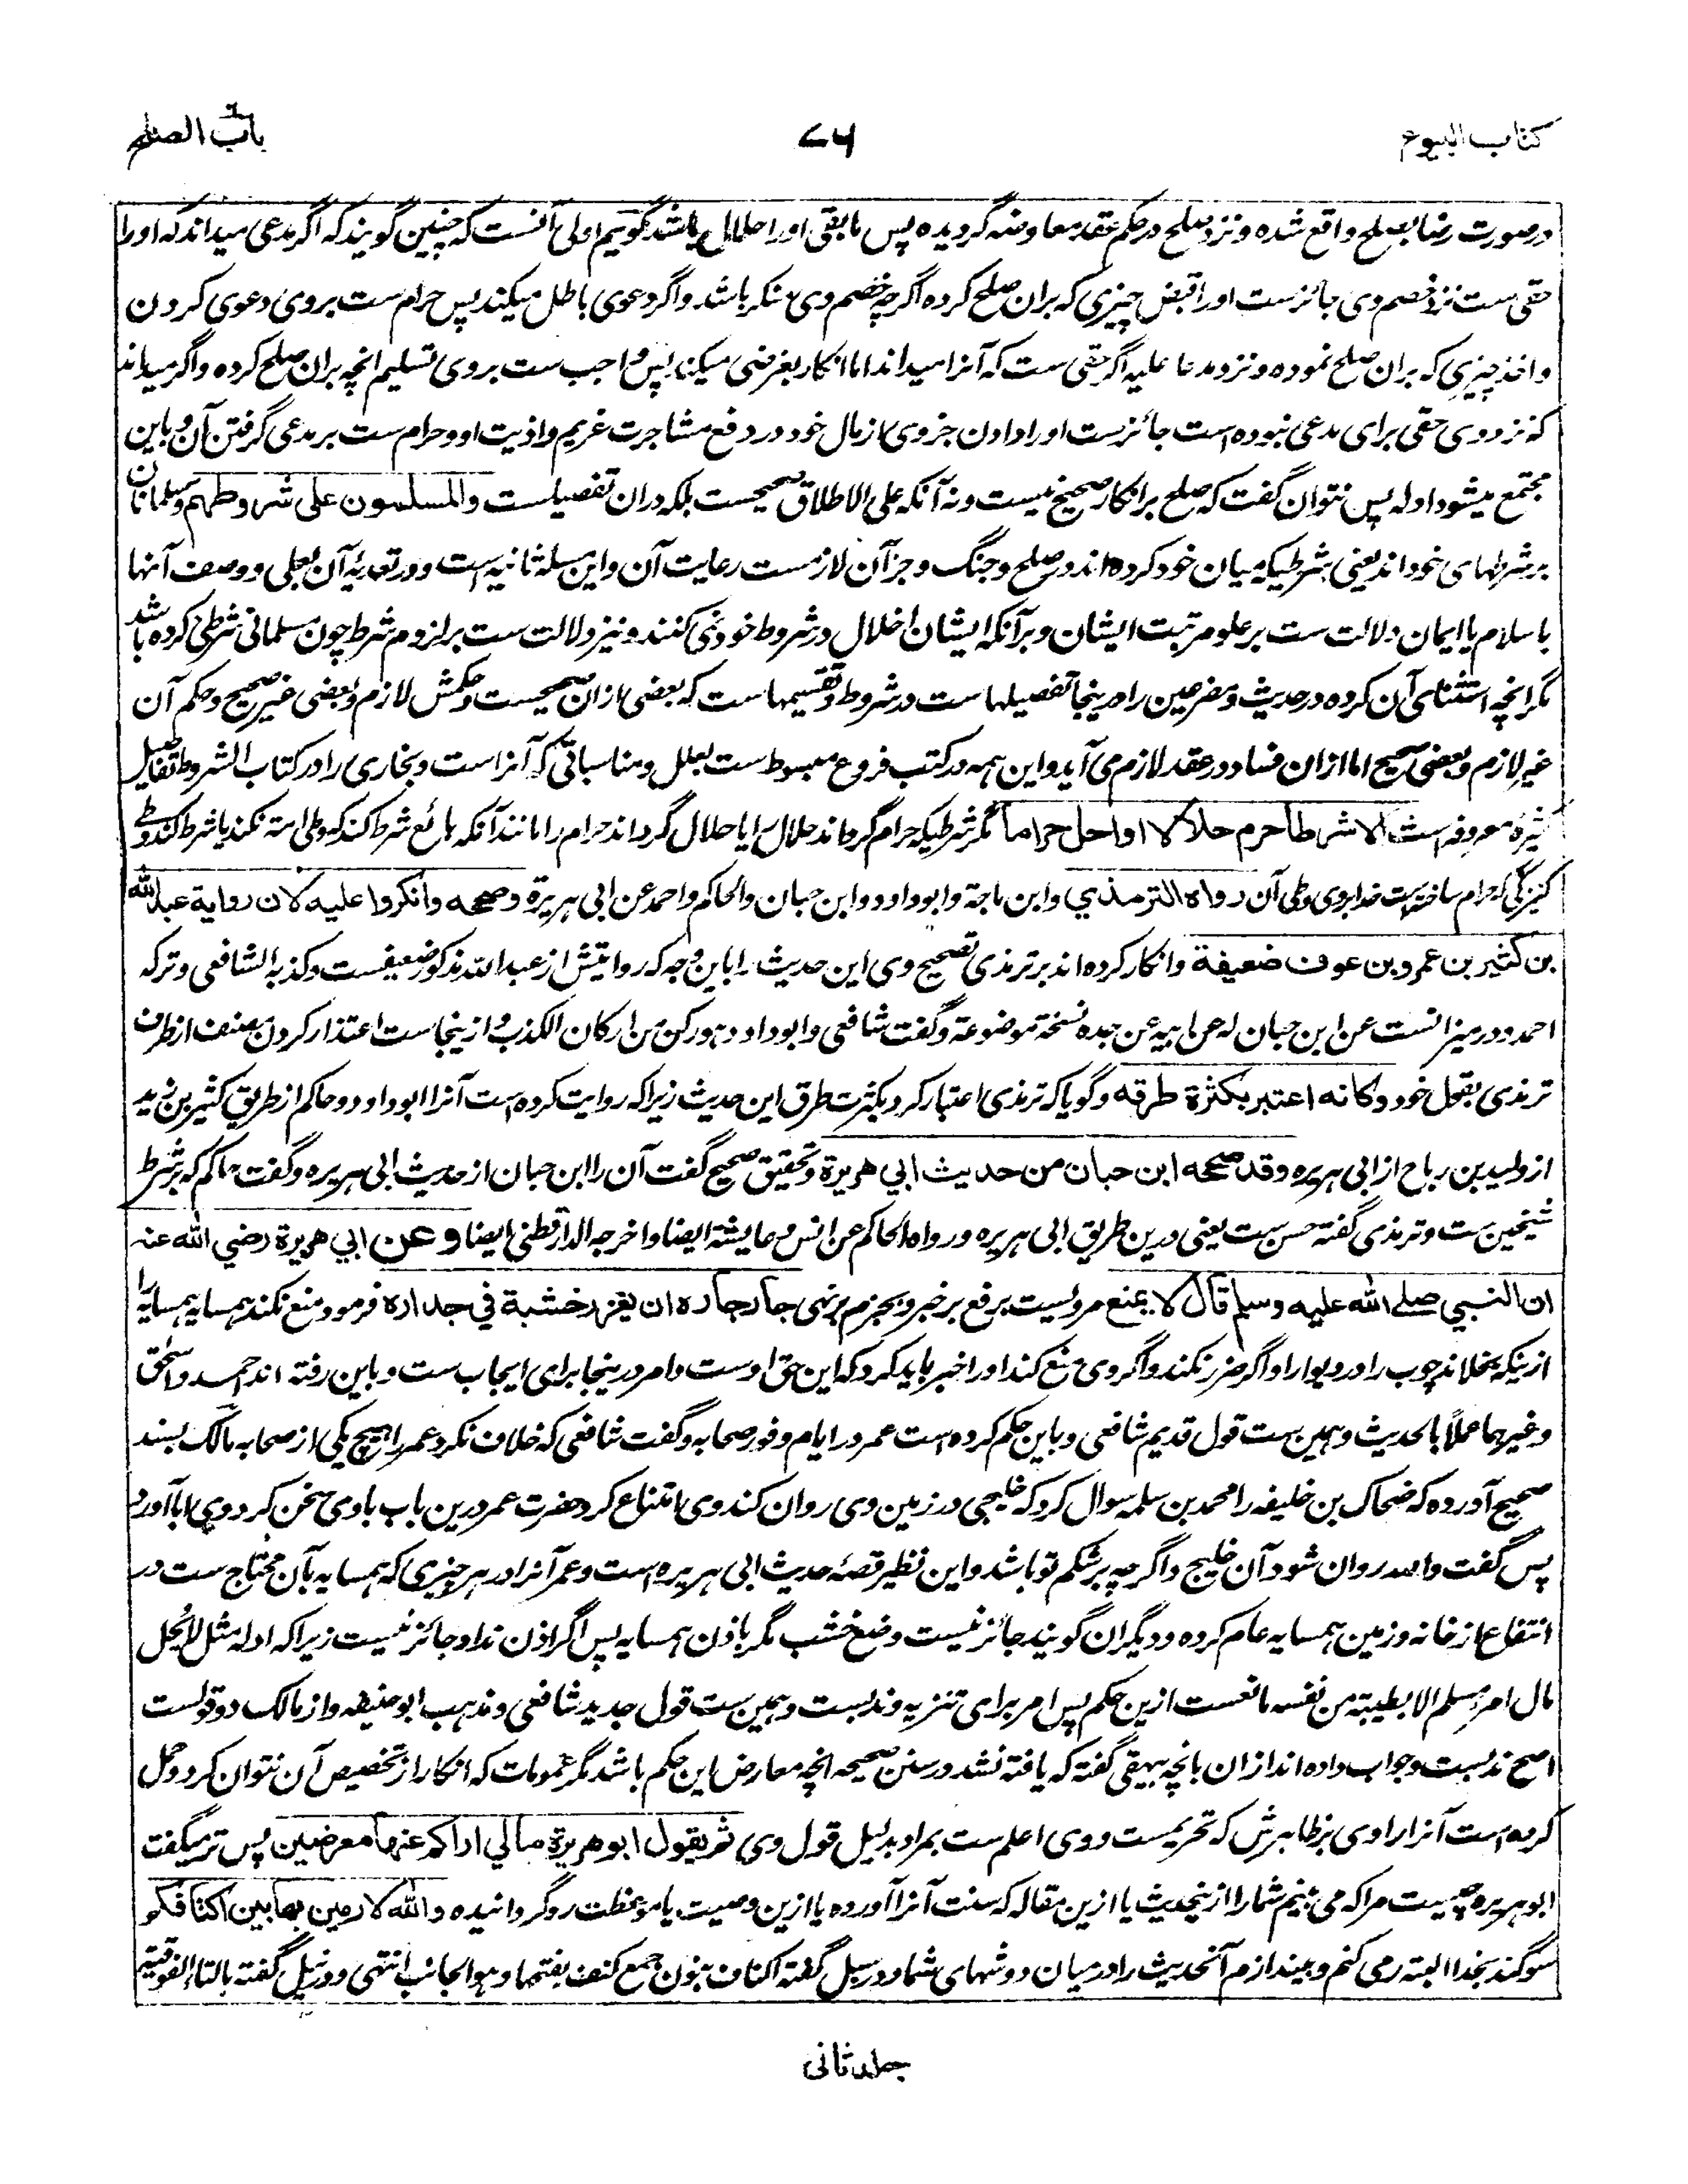 کتاب البیوع
۷۶
باب الصلح
درصورت رضا بصلح واقع شده ونزد صلح درحکم عقد معاوضه گردیده پس مابقی اورا حلال باشد گوییم اولی آنست که چنین گویند که اگر مدعی میداند که اورا
حقی ست نزد خصم وی جائزست اورا قبض چیزی که بران صلح کرده اگرچه خصم وی منکر باشد واگر دعوی باطل میکند پس حرام ست بروی دعوی کردن
واخذ چیزی که بران صلح نموده ونزد مدعا علیه اگر حقی ست که آنرا میداند اما انکار بغرضی میکند پس واجب ست بروی تسلیم انچه بران صلح کرده واگر میداند
که نزد وی حقی برای مدعی نبوده است جائزست اورا دادن جزوی از مال خود در دفع مشاجرت غریم واذیت او وحرام ست بر مدعی گرفتن آن وباین
مجتمع میشود ادله پس نتوان گفت که صلح بر انکار صحیح نیست ونه آنکه علی الاطلاق صحیحست بلکه دران تفصیلست والمسلمون علی شروطهم ومسلمانان
بر شرطهای خوداند یعنی بشرطیکه میان خود کرده اند در صلح وجنگ وجز آن لازمست رعایت آن واین مسله ثانیه است ودر تعدیه آن بعلی ووصف آنها
باسلام یا ایمان دلالت ست بر علو مرتبت ایشان وبرآنکه ایشان اخلال در شروط خود نمی کنند ونیز دلالت ست بر لزوم شرط چون مسلمانی شرطی کرده باشد
مگر انچه استثنای آن کرده در حدیث ومفرعین را درینجا تفصیلها ست در شروط وتقسیمها ست که بعضی ازان صحیحست وحکمش لازم وبعضی غیر صحیح وحکم آن
غیر لازم وبعضی صحیح اما ازان فساد در عقد لازم می آید واین همه در کتب فروع مبسوط ست بعلل ومناسباتی که آنراست وبخاری را در کتاب الشروط تفاصیل
کثیره معروفه است الا شرطا حرم حلالا او احل حراما مگر شرطیکه حرام گرداند حلال را یا حلال گرداند حرام را مانند آنکه بائع شرط کند که وطی امته نکند یا شرط کند وطی
کنیزکی که حرام ساخته است خدا بروی وطی آن رواه الترمذی وابن ماجة وابوداود وابن حبان والحاکم واحمد عن ابی هریرة وصححه وانکروا علیه لان روایة عبدالله
بن کثیر بن عمرو بن عوف ضعیفة وانکار کرده اند بر ترمذی تصحیح وی این حدیث را باین وجه که روایتش از عبدالله مذکور ضعیفست وکذبه الشافعی وترکه
احمد ودر میزانست عن ابن حبان له عن ابیه عن جده نسخة موضوعة وگفت شافعی وابوداود هو رکن من ارکان الکذب وازینجاست اعتذار کردن مصنف از طرف
ترمذی بقول خود وکانه اعتبر بکثرة طرقه وگویا که ترمذی اعتبار کرد بکثرت طرق این حدیث زیرا که روایت کرده است آنرا ابوداود وحاکم از طریق کثیر بن زید
از ولید بن رباح از ابی هریره وقد صححه ابن حبان من حدیث ابی هریرة وتحقیق صحیح گفت آن را ابن حبان از حدیث ابی هریره وگفت حاکم که بر شرط
شیخین ست وترمذی گفته حسن ست یعنی درین طریق ابی هریره ورواه الحاکم عن انس وعایشة ایضا واخرجه الدارقطنی ایضا وعن ابی هریرة رضی الله عنه
ان النبی صلی الله علیه وسلم قال لا یمنع مرویست برفع بر خبر وبجزم بر نهی جار جاره ان یغرز خشبة فی جداره فرمود منع نکند همسایه همسایه را
ازینکه بخلاند چوب را در دیوار او اگر ضرر نکند واگر وی منع کند اورا خبر باید کرد که این حق اوست وامر درینجا برای ایجاب ست وباین رفته اند احمد واسحق
وغیرهما عملا بالحدیث وهمین ست قول قدیم شافعی وباین حکم کرده است عمر در ایام وفور صحابه وگفت شافعی که خلاف نکرد عمر را هیچ یکی از صحابه مالک بسند
صحیح آورده که ضحاک بن خلیفه را محمد بن سلمه سوال کرد که خلیجی در زمین وی روان کند وی امتناع کرد حضرت عمر درین باب باوی سخن کرد وی ابا آورد
پس گفت والله روان شود آن خلیج واگرچه بر شکم تو باشد واین نظیر قصۀ حدیث ابی هریره است وعمر آنرا در هر چیزی که همسایه بآن محتاج ست در
انتفاع از خانه وزمین همسایه عام کرده ودیگران گویند جائز نیست وضع خشب مگر باذن همسایه پس اگر اذن نداد جائز نیست زیرا که ادله مثل لا یحل
مال امرء مسلم الا بطیبة من نفسه مانعست ازین حکم پس امر برای تنزیه وندبست وهمین ست قول جدید شافعی ومذهب ابوحنیفه واز مالک دو قولست
اصح ندبست وجواب داده اند ازان بانچه بیهقی گفته که یافته نشد در سنن صحیحه انچه معارض این حکم باشد مگر عمومات که انکار از تخصیص آن نتوان کرد وحمل
کرده است آنرا راوی بر ظاهرش که تحریمست ووی اعلم ست بمراد بدلیل قول وی ثم یقول ابو هریرة مالی اراکم عنها معرضین پس تر میگفت
ابو هریره چیست مرا که می بینم شما را ازینحدیث یا ازین مقاله که سنت آنرا آورده یا ازین وصیت یا موعظت روگردانیده والله لارمین بها بین اکتافکم
سوگند بخدا البته رمی کنم وبیندازم آنحدیث را در میان دوشهای شما ودر سبل گفته اکناف بنون جمع کنف بفتحها وهو الجانب انتهی ودر نیل گفته بالتاء الفوقیة
جلد ثانی